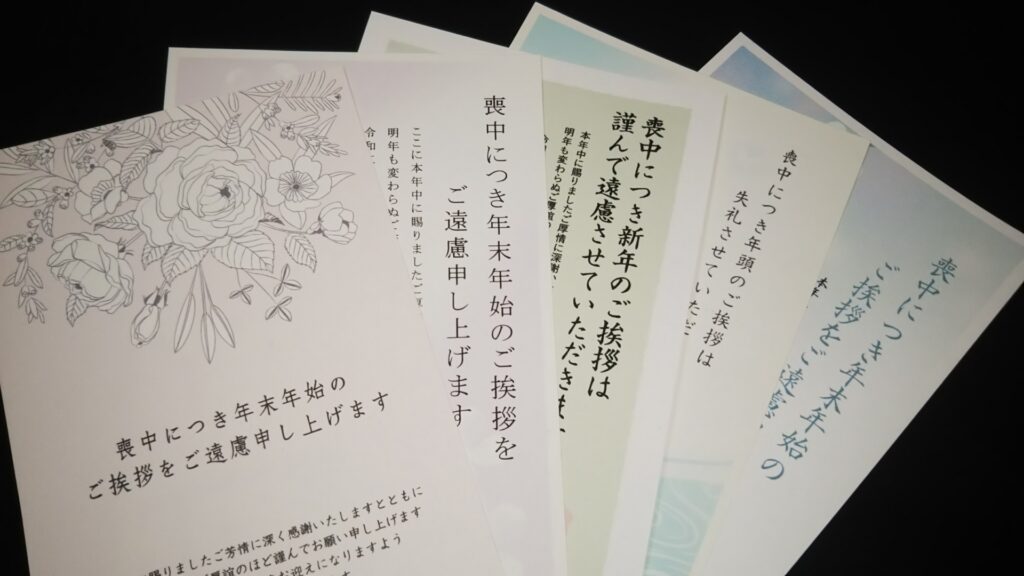 喪中につき年末年始の
ご挨拶をご遠慮申し上げます
賜りましたご芳情に深く感謝いたしますとともに
誼のほど謹んでお願い申し上げます
お迎えになりますよう
喪中につき年末年始のご挨拶を
ご遠慮申し上げます
ここに本年中に賜りましたご
明年も変わらぬご
令和
喪中につき新年のご挨拶は
謹んで遠慮させていただきま
本年中に賜りましたご厚情に深謝
明年も変わらぬご厚誼の
喪中につき年頭のご挨拶は
失礼させていただ
喪中につき年末年始の
ご挨拶をご遠慮
本年